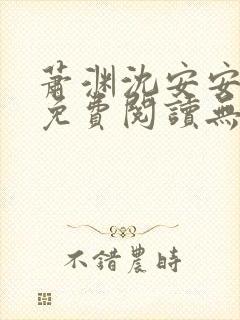 萧渊沈安安
免費閱讀無
不錯農時